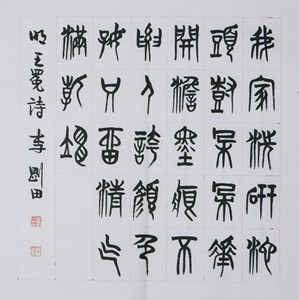 我家洗研池
頭樹朵朵華
開澹墨痕不
要人誇顏色
好只留清气
滿乾坤
明王冕詩 李剛田